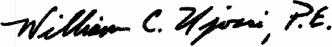 William C. Ujvari, P.E.